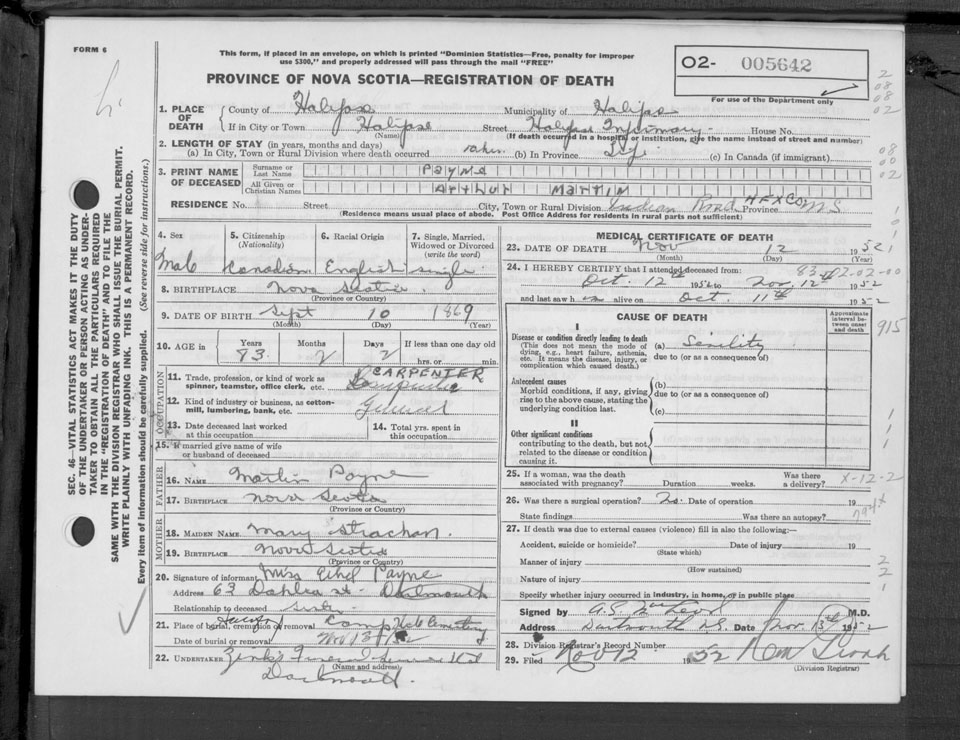 FORM 6
This form, if placed in an envelope, on which is printed "Dominion Statistics—Free, penalty for improper
use $300," and properly addressed will pass through the mail "FREE"
PROVINCE OF NOVA SCOTIA—REGISTRATION OF DEATH
O2- 005642
For use of the Department only
SEC. 46—VITAL STATISTICS ACT MAKES IT THE DUTY
OF THE UNDERTAKER OR PERSON ACTING AS UNDER-
TAKER TO OBTAIN ALL THE PARTICULARS REQUIRED
IN THE "REGISTRATION OF DEATH" AND TO FILE THE
SAME WITH THE DIVISION REGISTRAR WHO SHALL ISSUE THE BURIAL PERMIT.
WRITE PLAINLY WITH UNFADING INK. THIS IS A PERMANENT RECORD.
Every item of information should be carefully supplied. (See reverse side for instructions.)
1. PLACE OF DEATH County of Halifax Municipality of Halifax
If in City or Town Halifax Street Halifax Infirmary House No.
(Name) (If death occurred in a hospital or institution, give the name instead of street and number)
2. LENGTH OF STAY (in years, months and days)
(a) In City, Town or Rural Division where death occurred (b) In Province (c) In Canada (if immigrant)
3. PRINT NAME OF DECEASED
Surname or Last Name Payne
All Given or Christian Names Arthur Martin
RESIDENCE No. Street City, Town or Rural Division Indian Road HFX CO Province N S
(Residence means usual place of abode. Post Office Address for residents in rural parts not sufficient)
4. Sex Male
5. Citizenship (Nationality) Canadian
6. Racial Origin English
7. Single, Married, Widowed or Divorced (write the word) Single
8. BIRTHPLACE Nova Scotia
(Province or Country)
9. DATE OF BIRTH Sept 10 1869
(Month) (Day) (Year)
10. AGE in Years 83 Months 2 Days 2 If less than one day hrs. or min.
OCCUPATION
11. Trade, profession, or kind of work as spinner, teamster, office clerk, etc. CARPENTER
12. Kind of industry or business, as cotton-mill, lumbering, bank, etc. General
13. Date deceased last worked at this occupation
14. Total yrs. spent in this occupation
15. If married give name of wife or husband of deceased
FATHER
16. NAME Martin Payne
17. BIRTHPLACE Nova Scotia
(Province or Country)
MOTHER
18. MAIDEN NAME Mary Strachan
19. BIRTHPLACE Nova Scotia
(Province or Country)
20. Signature of informant Miss Ethel Payne
Address 63 Dahlia St. Dartmouth
Relationship to deceased
21. Place of burial, cremation or removal Camp Hill Cemetery
Date of burial or removal Nov 13
22. UNDERTAKER Funeral
(Name and address)
Dartmouth
MEDICAL CERTIFICATE OF DEATH
23. DATE OF DEATH Nov 12 1952
(Month) (Day)
24. I HEREBY CERTIFY that I attended deceased from:
Oct. 12th 1952 to Nov. 12th 1952
and last saw him alive on Oct. 11th 1952
CAUSE OF DEATH
Approximate interval between onset and death
I
Disease or condition directly leading to death
(This does not mean the mode of dying, e.g., heart failure, asthenia, etc. It means the disease, injury, or complication which caused death.)
(a) Senility
due to (or as a consequence of)
Antecedent causes
Morbid conditions, if any, giving rise to the above cause, stating the underlying condition last.
(b)
due to (or as a consequence of)
(c)
II
Other significant conditions
contributing to the death, but not related to the disease or condition causing it.
915
25. If a woman, was the death associated with pregnancy? Duration weeks. Was there a delivery? X-12-2
26. Was there a surgical operation? No. Date of operation 19
State findings Was there an autopsy?
27. If death was due to external causes (violence) fill in also the following:—
Accident, suicide or homicide? Date of injury 19
(State which)
Manner of injury
(How sustained)
Nature of injury
Specify whether injury occurred in industry, in home, or in public place
Signed by M.D.
Address Dartmouth N.S. Date Nov. 13th 1952
28. Division Registrar's Record Number
29. Filed Nov 12 1952
(Division Registrar)